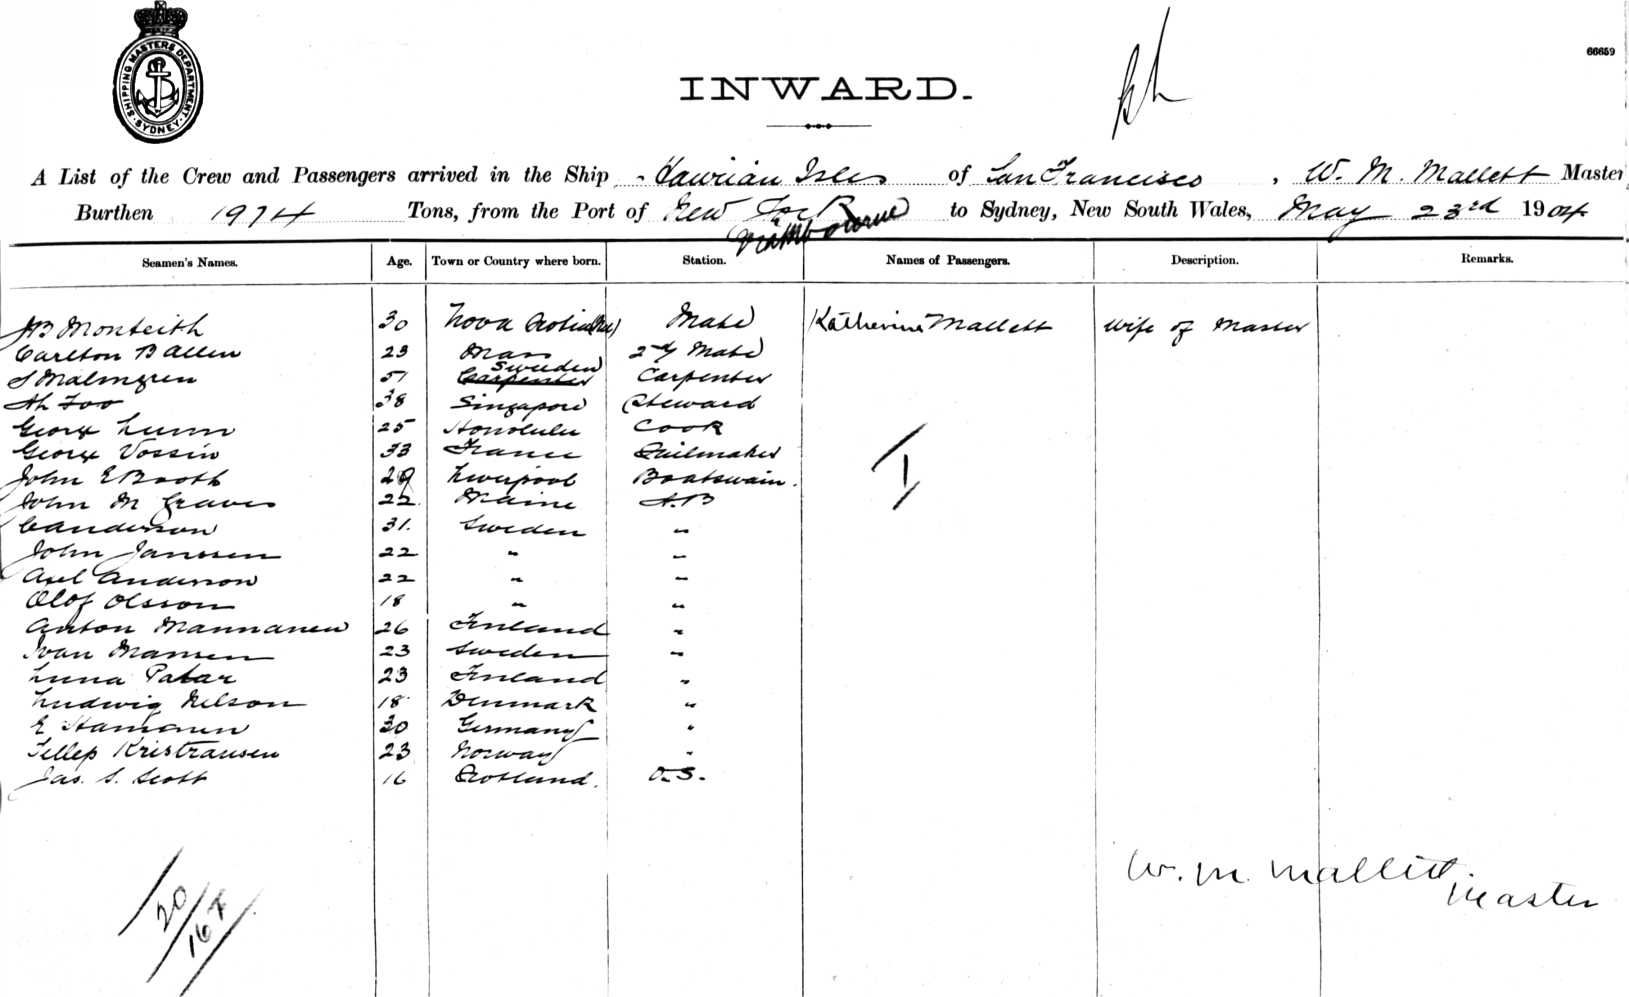 SHIPPING MASTERS DEPARTMENT · SYDNEY ·
66659
INWARD.
A List of the Crew and Passengers arrived in the Ship Hawaiian Isles of San Francisco, W. M. Mallett Master
Burthen 1974 Tons, from the Port of New York to Sydney, New South Wales, May 23rd 1904
Melbourne
Seamen's Names. Age. Town or Country where born. Station. Names of Passengers. Description. Remarks.
JB Monteith 30 Nova Scotia Mate Katherine Mallett Wife of Master
Carlton B Allen 23 Mass 2nd Mate
Sweden
S Malmgren 51 Carpenter Carpenter
Ah Foo 38 Singapore Steward
George Lunn 25 Honolulu Cook
George Vossin 33 France Sailmaker
John E Booth 29 Liverpool Boatswain.
John M Graves 22 Maine A.B
C Anderson 31. Sweden "
John Janssen 22 " "
Axel Anderson 22 " "
Olof Olsson 18 " "
Anton Mannanen 26 Finland "
Ivan Mansen 23 Sweden "
Luna Patar 23 Finland "
Ludwig Nelson 18 Denmark "
E Hamann 30 Germany "
Tellep Kristiansen 23 Norway "
Jas. S. Scott 16 Scotland. O.S.
1
20
167
W. M. Mallett
Master